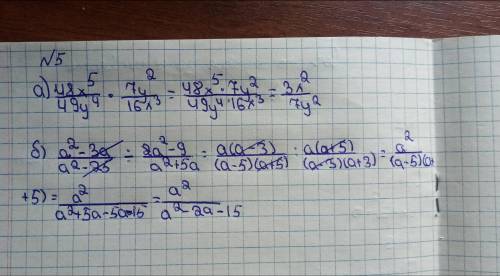 №5
а) 48x⁵/49y⁴ · 7y²/16x³ = 48x⁵·7y²/49y⁴·16x³ = 3x²/7y²
б) a²-3a/a²-25 ÷ 2a²-9/a²+5a = a(a-3)/(a-5)(a+5) · a(a+5)/(a-3)(a+3) = a²/(a-5)(a+
+5) = a²/a²+3a-5a-15 = a²/a²-2a-15